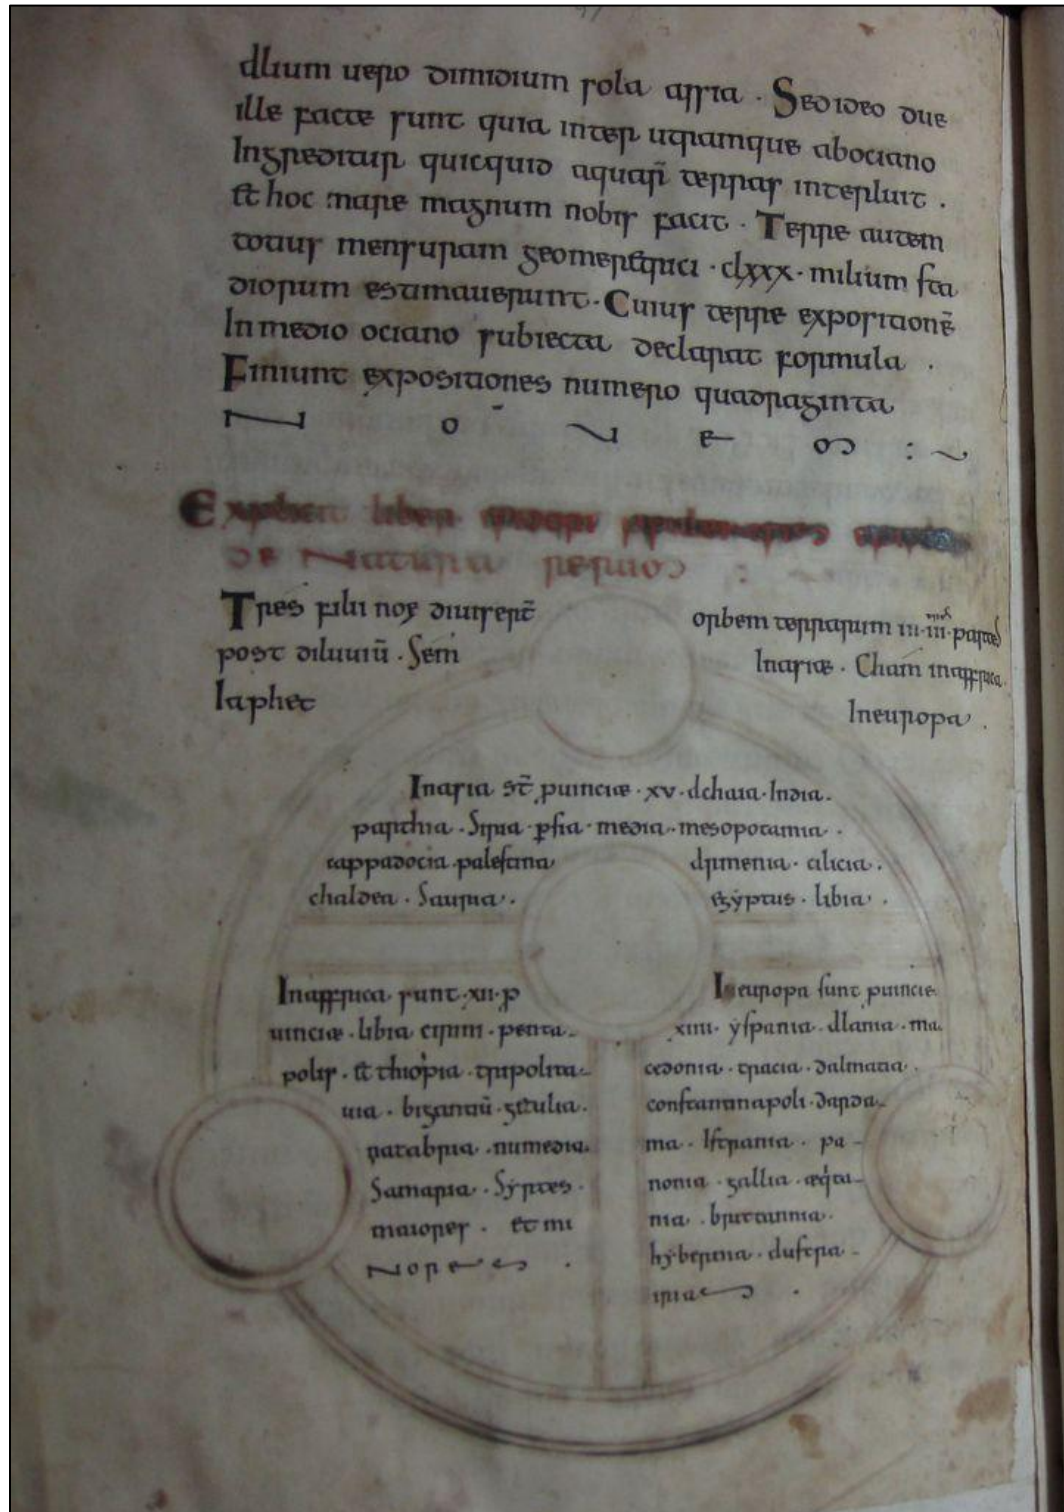 dlium uero dimidium sola assia . Sed ideo due
ille facte sunt quia inter utramque abociano
Ingreditur quicquid aquarū terras interluit .
Et hoc mare magnum nobis facit . Terre autem
totius mensuram geometrici . clxxx . milium sta
diorum estimauerunt . Cuius terre expositionē
In medio ociano subiecta declarat formula .
Finiunt expositiones numero quadraginta
N o u e m : ~
Explicit liber
De Natura rerum :
Tres filii noę diuisert̄ orbem terrarum in .iii. partes
post diluuiū . Sem In asiæ . Cham in affrica .
Iaphet In europa .
In asia st̄ puinciæ . xv . dchaia . India .
parthia . Siria . ꝑsia . media . mesopotamia .
cappadocia . palestina drmenia . cilicia .
chaldea . Sauria . egyptus . libia .
In affrica . sunt . xii . p
uinciæ . libia cirini . penta
polis . Ethiopia . tripolita
uia . bizantiū . getulia .
natabria . numedia .
Samaria . Syrtes .
maiores . et mi
Nores .
In europa sunt puincie
xiiii . yspania . dlania . ma
cedonia . tracia . dalmatia .
constantinapoli . darda
ma . Istrania . pa
nonia . gallia . æqita
nia . brittannia .
hybernia . dustra
iria .